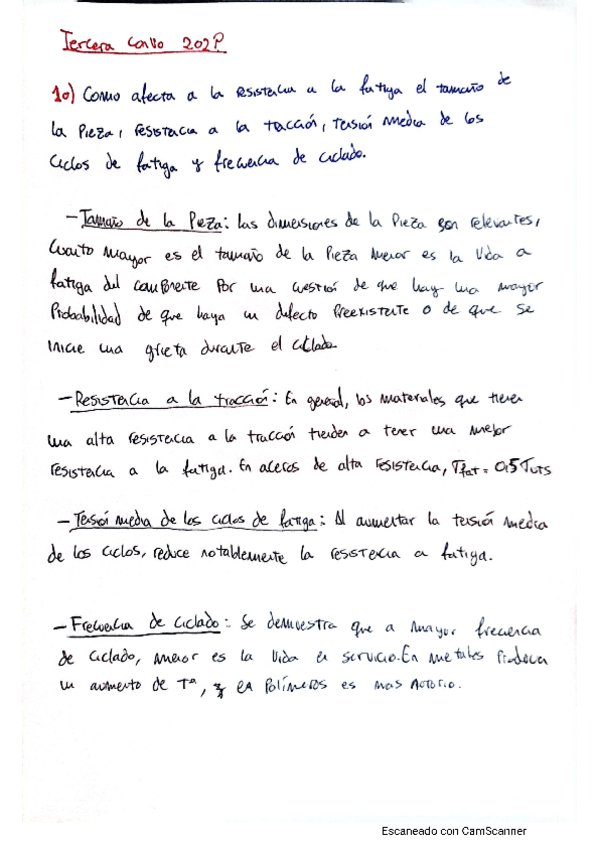 Tercera Convo 202P
10) Como afecta a la resistencia a la fatiga el tamaño de
la Pieza, resistencia a la tracción, tensión media de los
ciclos de fatiga y frecuencia de ciclado.
- Tamaño de la Pieza: Las dimensiones de la Pieza son relevantes,
Cuanto mayor es el tamaño de la Pieza menor es la vida a
fatiga del componente Por una cuestión de que hay una mayor
Probabilidad de que haya un defecto Preexistente o de que se
inicie una grieta durante el ciclado.
- Resistencia a la tracción: En general, los materiales que tienen
una alta resistencia a la tracción tienden a tener una mejor
resistencia a la fatiga. En aceros de alta resistencia, σfat = 0,5 σuts
- Tensión media de los ciclos de fatiga: Al aumentar la tensión media
de los ciclos, reduce notablemente la resistencia a fatiga.
- Frecuencia de ciclado: Se demuestra que a mayor frecuencia
de ciclado, menor es la vida en servicio. En metales Produce
un aumento de Tª, y en Polímeros es mas notorio.
Escaneado con CamScanner